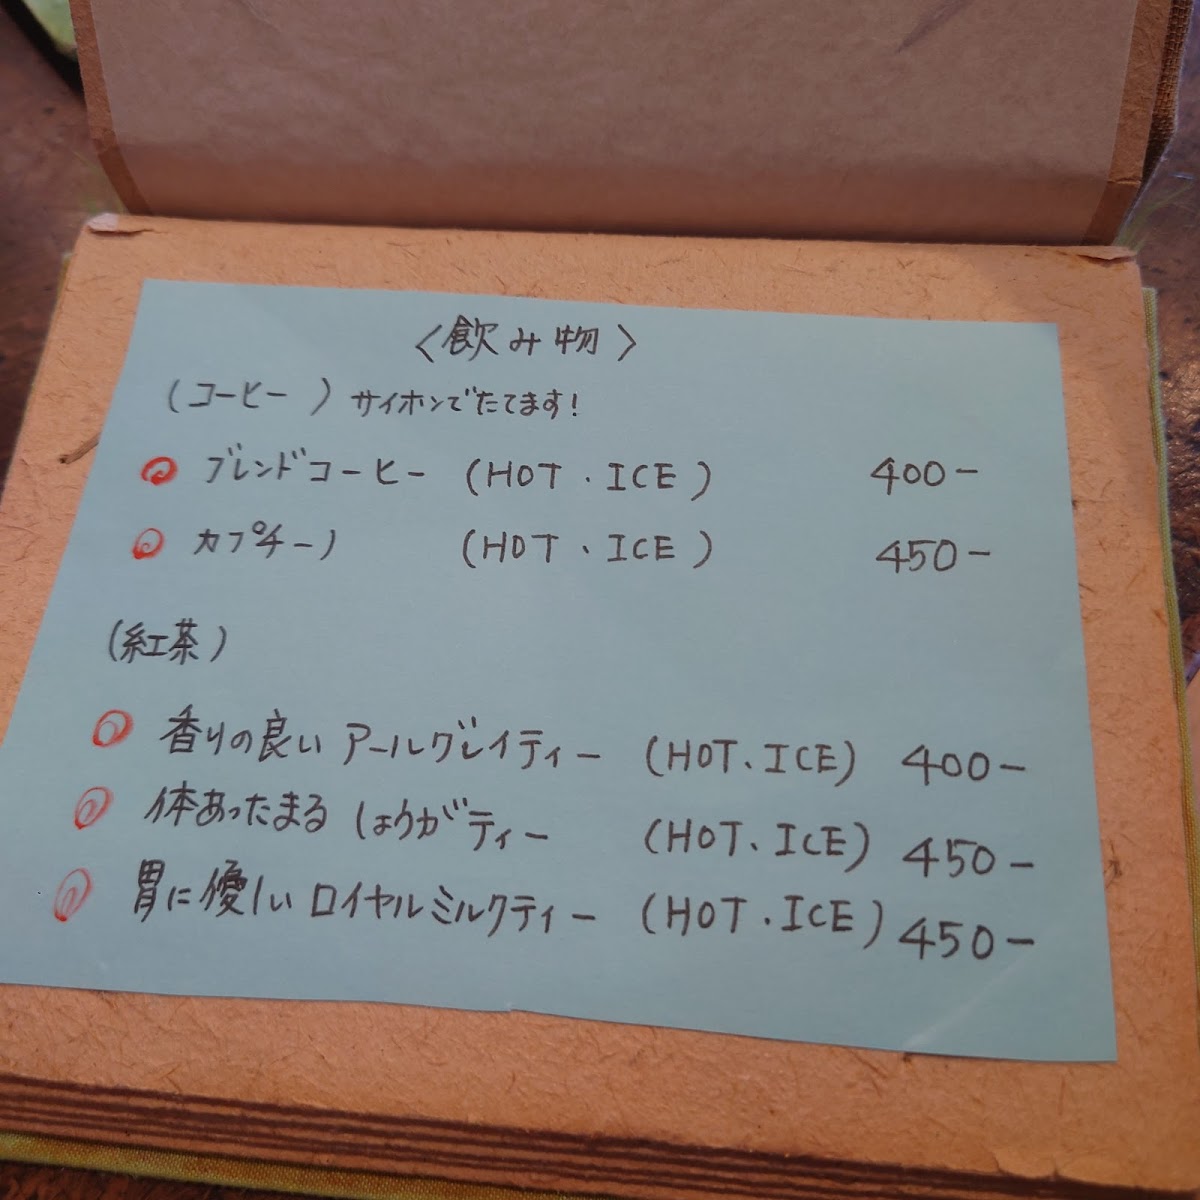 〈飲み物〉
(コーヒー) サイホンでたてます!
ブレンドコーヒー (HOT・ICE) 400-
カプチーノ (HOT、ICE) 450-
(紅茶)
香りの良い アールグレイティー (HOT、ICE) 400-
体あったまる しょうがティー (HOT、ICE) 450-
胃に優しい ロイヤルミルクティー (HOT・ICE) 450-